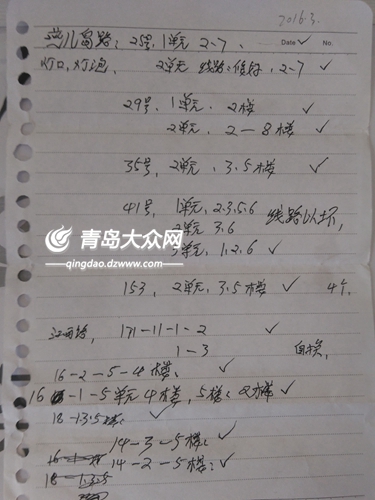 2016.3.
岛路：25号，1单元 2-7、 Date ✓ No.
灯口，灯泡， 2单元 线路：修好，2-7 ✓
29号，1单元， 2楼 ✓
2单元， 2—8楼 ✓
35号，2单元，3.5楼 ✓
41号，1单元，2.3.5.6 线路以坏，
2单元 3.6
青岛大众网
qingdao.dzwww.com
单元，1.2.6 ✓
153，2单元，3.5楼 ✓ 4个，
江西路， 171-11-1-2 ✓
1-3 自换，
16-2-5-4楼、 ✓
16 -1-5单元4楼，5楼：2楼 ✓
18-1.3.5楼： ✓
14-3-5楼： ✓
14-2-5楼：✓
18-1.3.5